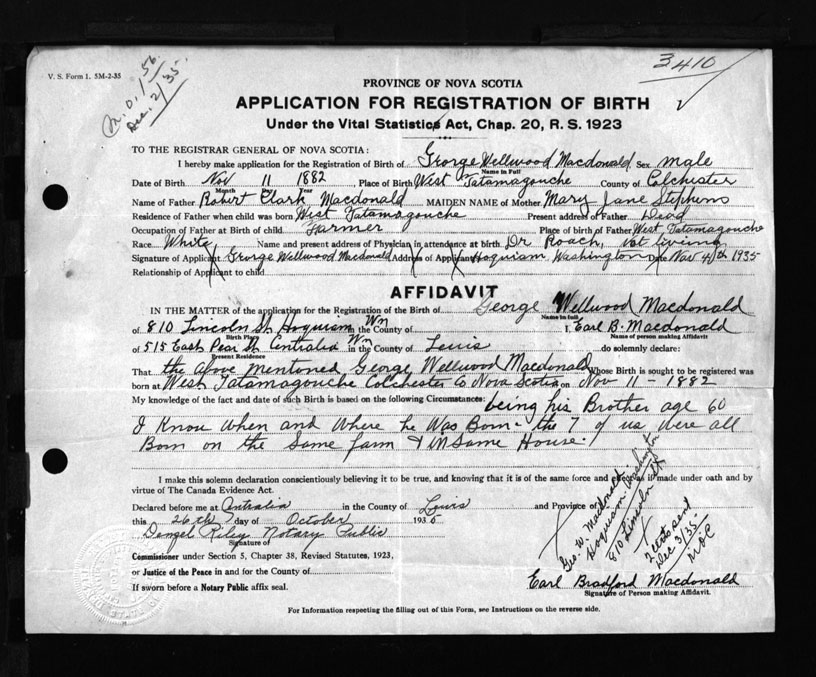 V. S. Form 1. 5M-2-35
M.O. 1/56
Dec. 2/35
3410
PROVINCE OF NOVA SCOTIA
APPLICATION FOR REGISTRATION OF BIRTH
Under the Vital Statistics Act, Chap. 20, R. S. 1923
TO THE REGISTRAR GENERAL OF NOVA SCOTIA:
I hereby make application for the Registration of Birth of George Wellwood Macdonald Sex male
Name in Full
Date of Birth Nov 11 1882 Place of Birth West Tatamagouche County of Colchester
Month Day Year
Name of Father Robert Clark Macdonald MAIDEN NAME of Mother Mary Jane Stephens
Residence of Father when child was born West Tatamagouche Present address of Father Dead
Occupation of Father at Birth of child Farmer Place of birth of Father West Tatamagouche
Race White Name and present address of Physician in attendance at birth Dr Roach, not living
Signature of Applicant George Wellwood Macdonald Address of Applicant Hoquiam, Washington Date Nov 4th 1935
Relationship of Applicant to child
AFFIDAVIT
IN THE MATTER of the application for the Registration of the Birth of George Wellwood Macdonald
Name in full
of 810 Lincoln St Hoquiam Wn in the County of I, Earl B. Macdonald
Birth Place Name of person making Affidavit
of 515 East Pear St Centralia Wn in the County of Lewis do solemnly declare:
Present Residence
That the above mentioned George Wellwood Macdonald Whose Birth is sought to be registered was
born at West Tatamagouche Colchester Co Nova Scotia on Nov 11 - 1882
My knowledge of the fact and date of such Birth is based on the following Circumstances: being his Brother age 60
I Know When and Where he Was Born - the 7 of us Were all
Born on the Same farm & in Same House.
I make this solemn declaration conscientiously believing it to be true, and knowing that it is of the same force and effect as if made under oath and by
virtue of The Canada Evidence Act.
Declared before me at Centralia in the County of Lewis and Province of
this 26th day of October 1935
Denzel Riley Notary Public
Signature of
Commissioner under Section 5, Chapter 38, Revised Statutes, 1923,
or Justice of the Peace in and for the County of
If sworn before a Notary Public affix seal.
Geo. W. Macdonald
Hoquiam Washington
810 Lincoln St
2 certs sent
Dec 3/35
Earl Bradford Macdonald
Signature of Person making Affidavit.
For Information respecting the filling out of this Form, see Instructions on the reverse side.